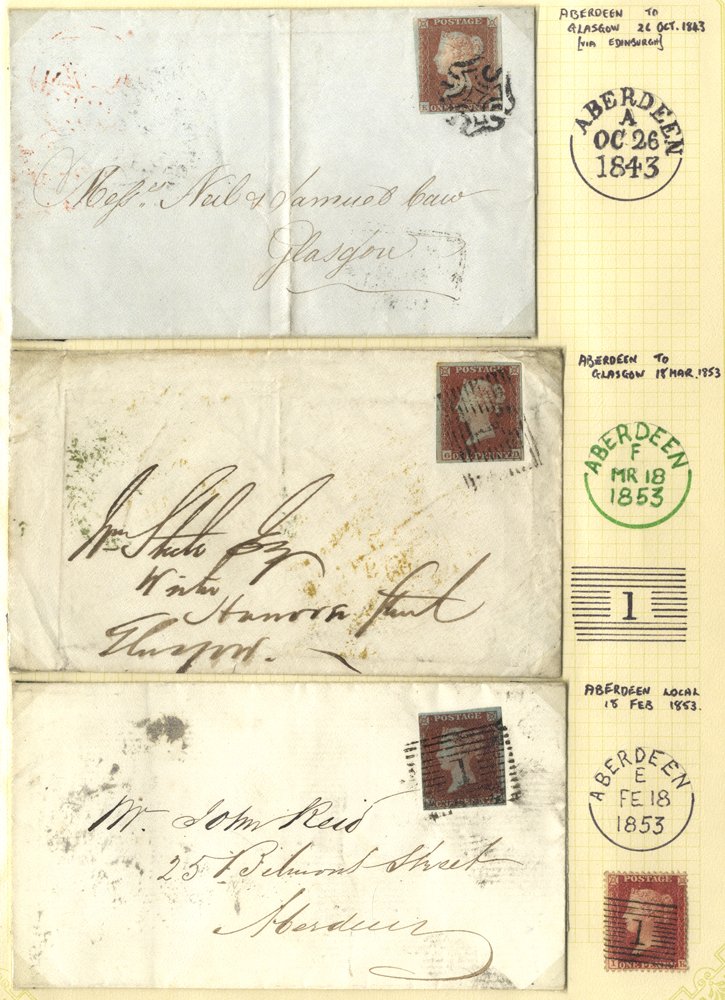 ABERDEEN TO
GLASGOW 26 OCT. 1843
[VIA EDINBURGH]
POSTAGE
ONE PENNY
ABERDEEN
A
OC 26
1843
Messrs Neil & Samuel Caw
Glasgow
ABERDEEN TO
GLASGOW 18 MAR. 1853
POSTAGE
ONE PENNY
ABERDEEN
F
MR 18
1853
1
Wm
Esq
Hanover Street
Glasgow.
ABERDEEN LOCAL
18 FEB 1853.
POSTAGE
1
ABERDEEN
E
FE 18
1853
Mr. John Reid
25 Belmont Street
Aberdeen
POSTAGE
1
ONE PENNY